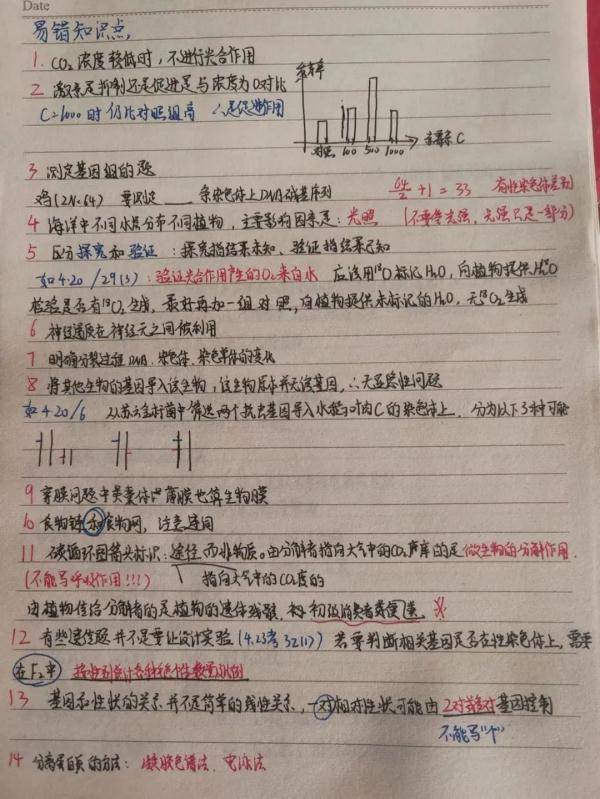 Date
易错知识点
1. CO₂浓度较低时，不进行光合作用
2 激素是抑制还是促进是与浓度为0对比
C=1000时仍比对照组高 ∴是促进作用
生根率
对照 100 500 1000 C
3 测定基因组的题
鸡(2N=64) 要测定____条染色体上DNA碱基序列 64/2+1=33 有性染色体差别
4 海洋中不同水层分布不同植物，主要影响因素是：光照 (不要答光强，光强只是一部分)
5 区分探究和验证：探究指结果未知、验证指结果已知
如4.20/29(3)：验证光合作用产生的O₂来自水 应该用¹⁸O标记H₂O，向植物提供H₂¹⁸O
检验是否有¹⁸O₂生成，最好再加一组对照，向植物提供未标记的H₂O，无¹⁸O₂生成
6 神经递质在神经元之间被利用
7 明确分裂过程DNA、染色体、染色单体的变化
8 将其他生物的基因导入该生物，该生物原本并无该基因，∴无显隐性问题
如4.20/6 从苏云金杆菌中筛选两个抗虫基因导入水稻叶肉C的染色体上，分为以下3种可能
9 穿膜问题中类囊体薄膜也算生物膜
10 食物链和食物网，注意连同
11 碳循环图箭头标识：途径而非物质。由分解者指向大气中的CO₂库的是微生物的分解作用
(不能写呼吸作用!!!) 指向大气中的CO₂库的
由植物传给分解者的是植物的遗体残骸，和初级消费者粪便量 ※
12 有些遗传题并不是要让设计实验(4.23考32(1)) 若要判断相关基因是否在性染色体上，需要
在F₂中 按性别统计各种表个体数量比例
13 基因和性状的关系并不是简单的线性关系，一对相对性状可能由2对或多对基因控制
不能写"个"
14 分离蛋白质的方法：凝胶色谱法、电泳法